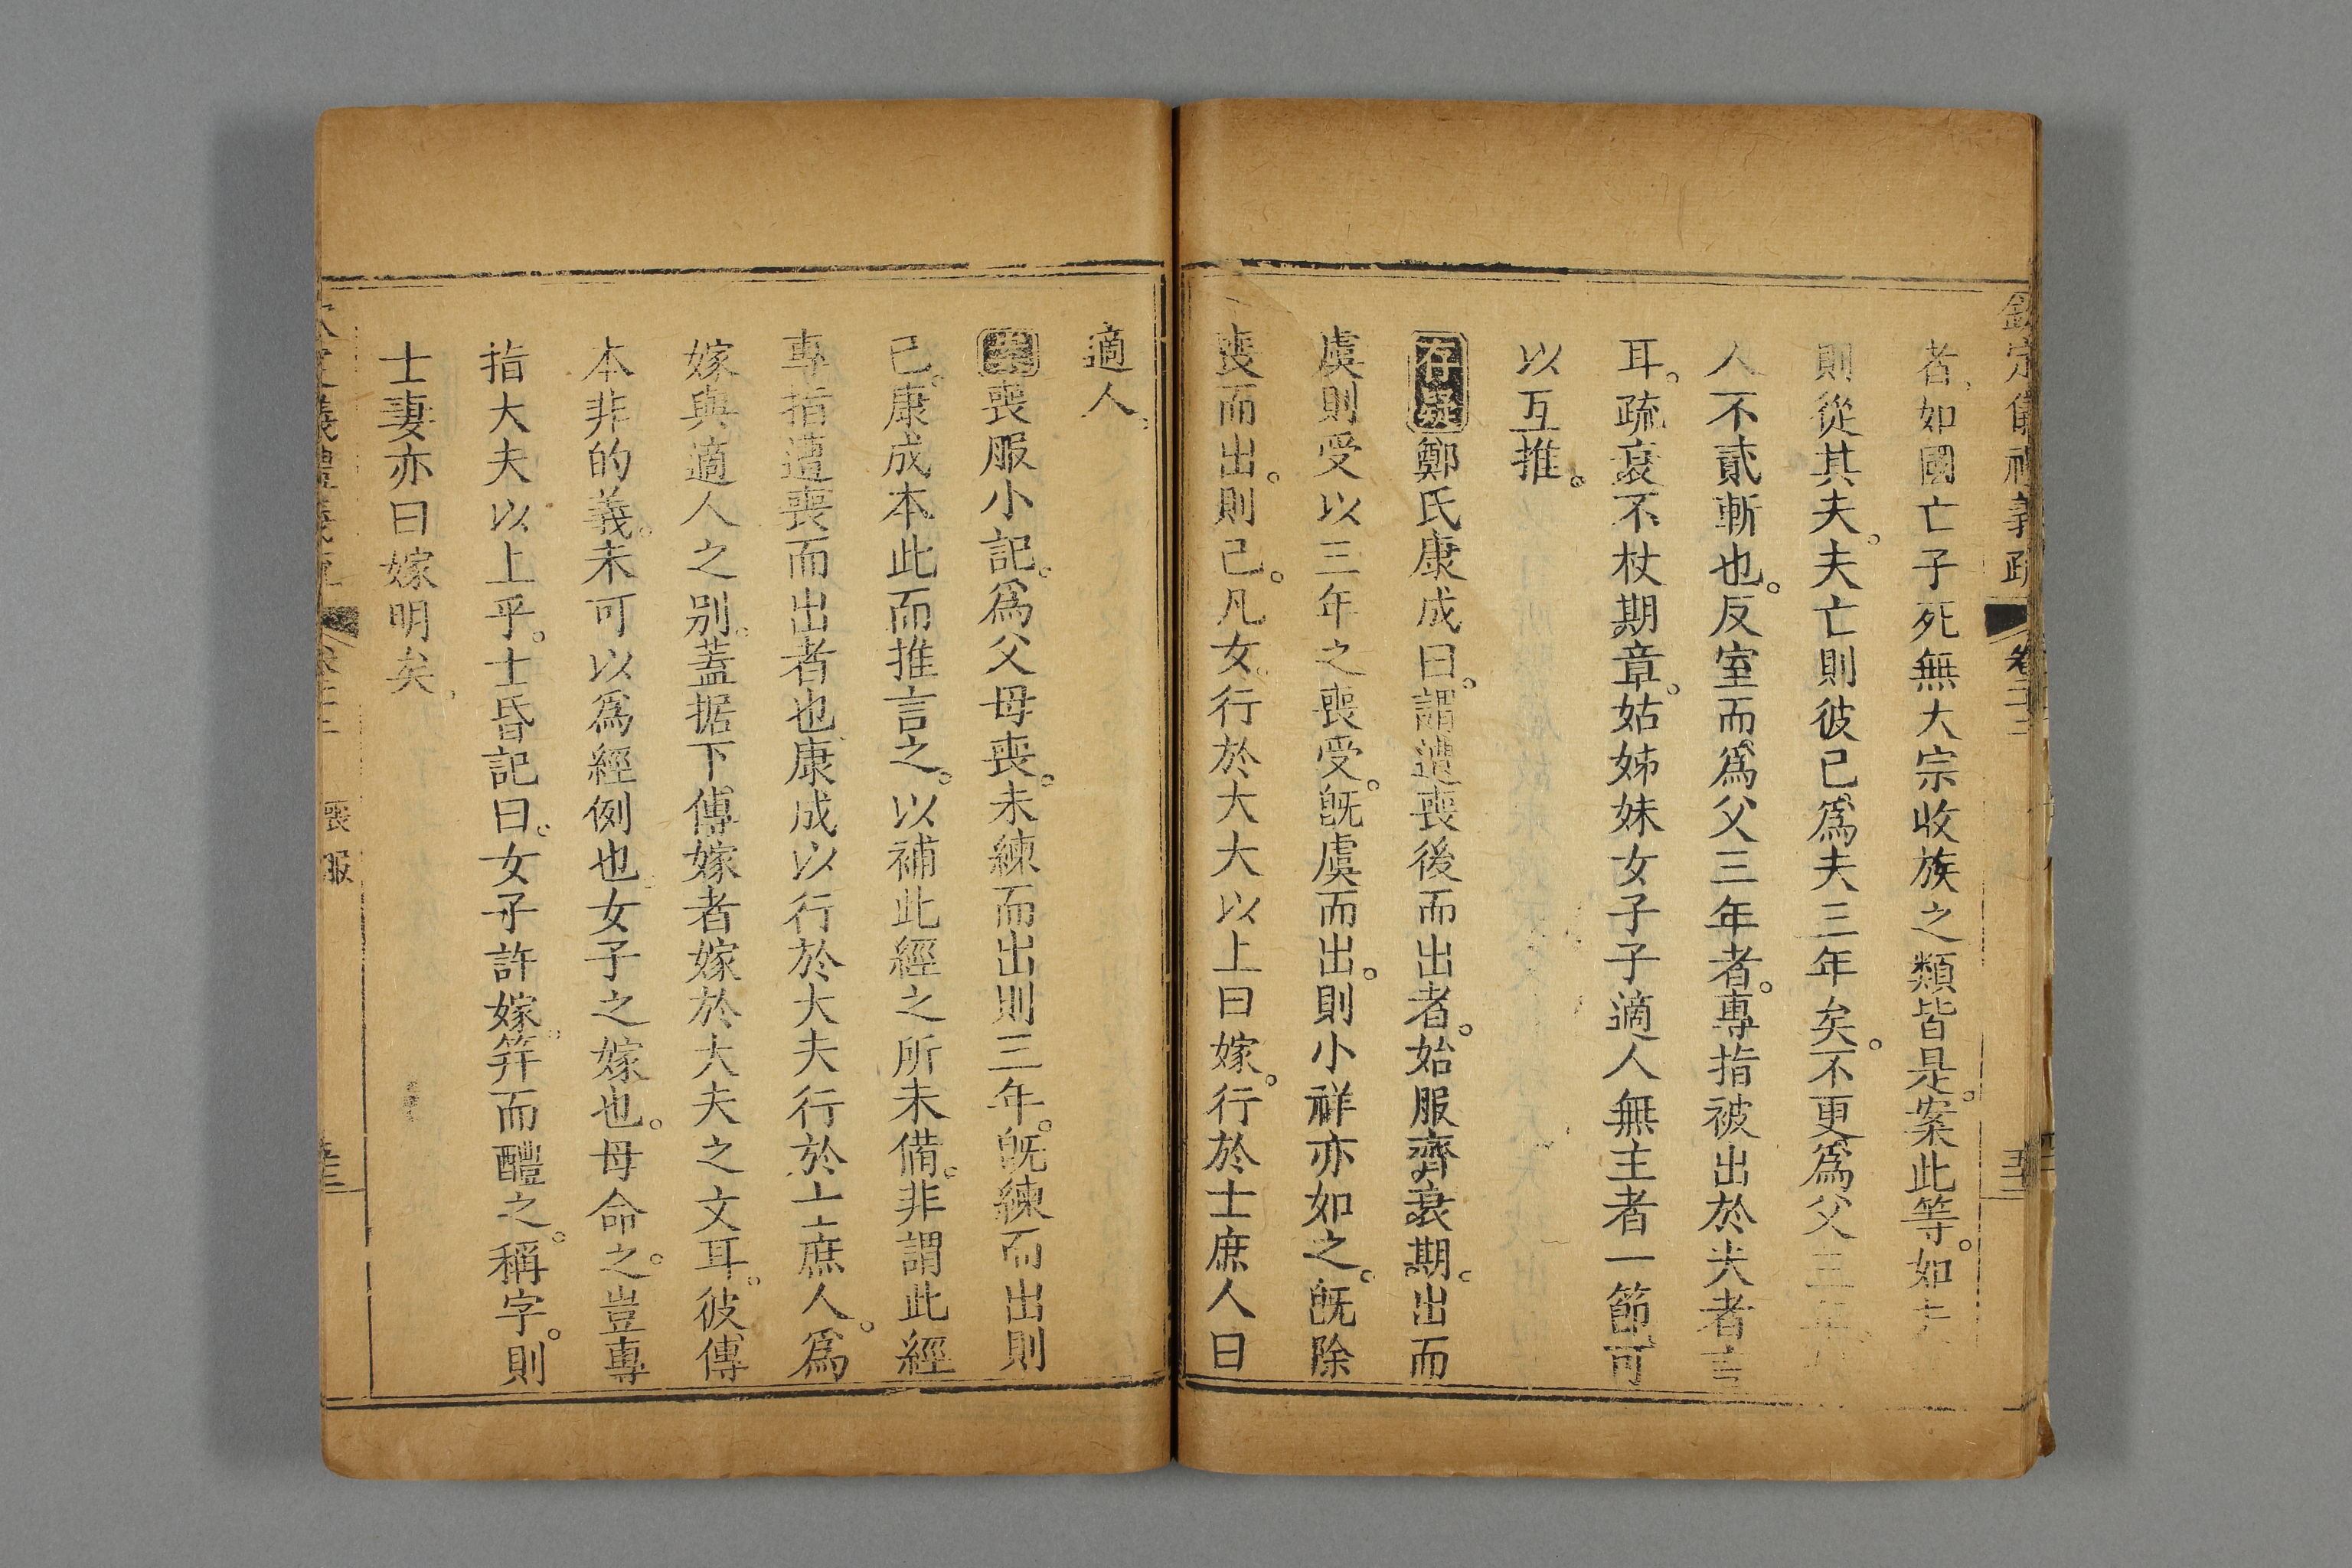 者如國亡子死無大宗收族之類皆是。案此等。如夫
則從其夫。夫亡則彼已爲夫三年矣。不更爲父三年
人不貳斬也。反室而爲父三年者。專指被出於夫者言
耳。疏衰不杖期章。姑姊妹女子子適人無主者一節可
以互推。
存疑鄭氏康成曰。謂遭喪後而出者。始服齊衰期。出而
虞則受以三年之喪受。旣虞而出。則小祥亦如之。旣除
喪而出。則已。凡女行於大大以上曰嫁。行於士庶人曰
適人。
案喪服小記。爲父母喪。未練而出則三年。旣練而出則
已。康成本此而推言之。以補此經之所未備。非謂此經
專指遭喪而出者也康成以行於大夫行於士庶人。爲
嫁與適人之別。蓋据下傳嫁者嫁於大夫之文耳。彼傳
本非的義。未可以爲經例也女子之嫁也。母命之。豈專
指大夫以上乎。士昏記曰。女子許嫁。筓而醴之。稱字。則
士妻亦曰嫁明矣
喪服